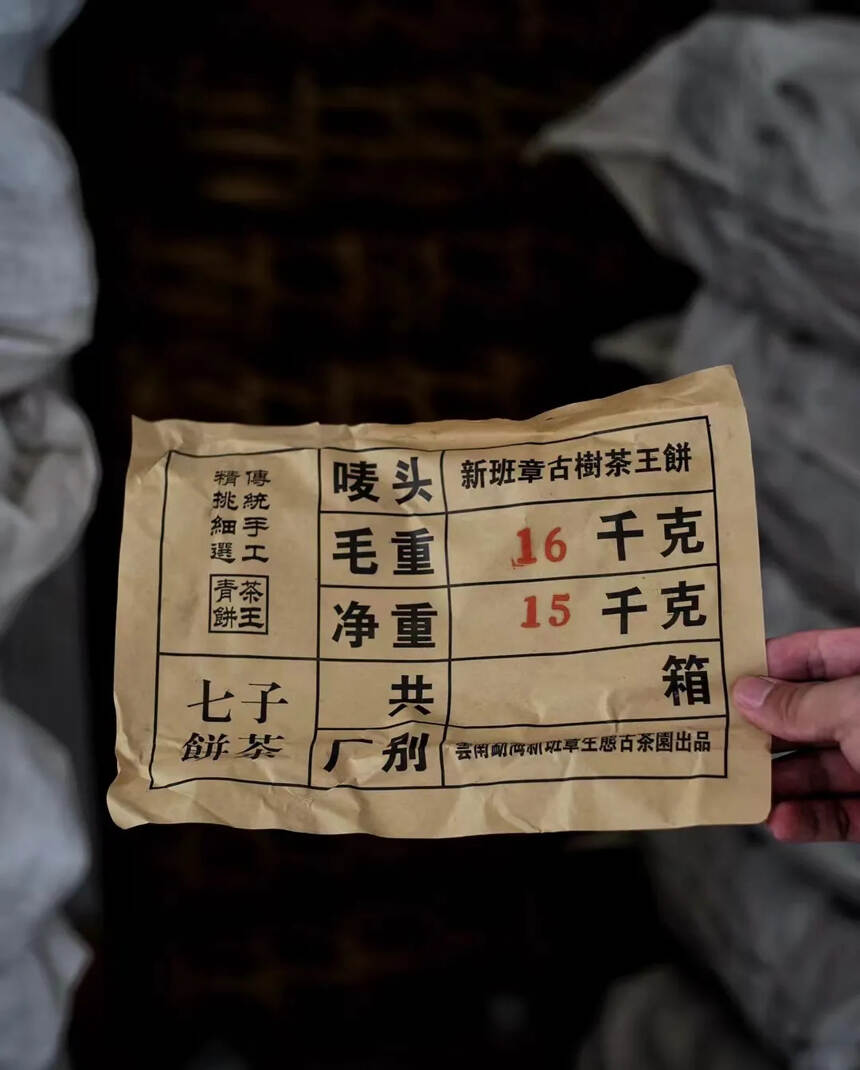 傳統手工
精挑細選
茶王
青餅
七子
餅茶
唛头 新班章古樹茶王餅
毛重 16 千克
净重 15 千克
共 箱
厂别 雲南勐海新班章生態古茶園出品